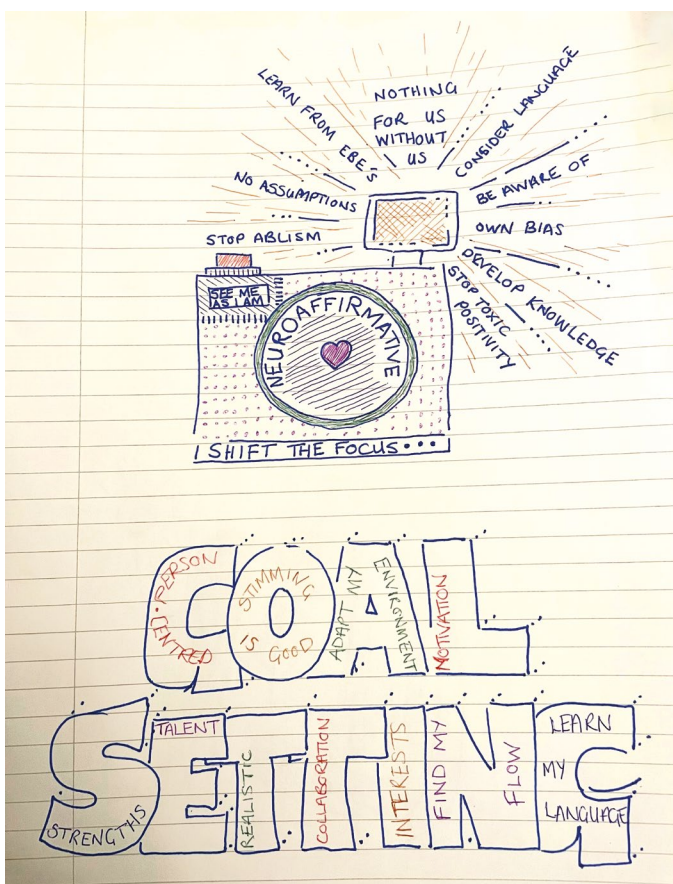 LEARN FROM EBE'S
NOTHING
FOR US
WITHOUT
US
CONSIDER LANGUAGE
NO ASSUMPTIONS
BE AWARE OF
OWN BIAS
STOP ABLISM
DEVELOP KNOWLEDGE
STOP TOXIC
POSITIVITY
SEE ME
AS I AM
NEUROAFFIRMATIVE
SHIFT THE FOCUS...
GOAL
PERSON
CENTRED
STIMMING
IS GOOD
ADAPT MY
ENVIRONMENT
MOTIVATION
SETTING
STRENGTHS
TALENT
REALISTIC
COLLABORATION
INTERESTS
FIND MY
FLOW
LEARN
MY
LANGUAGE